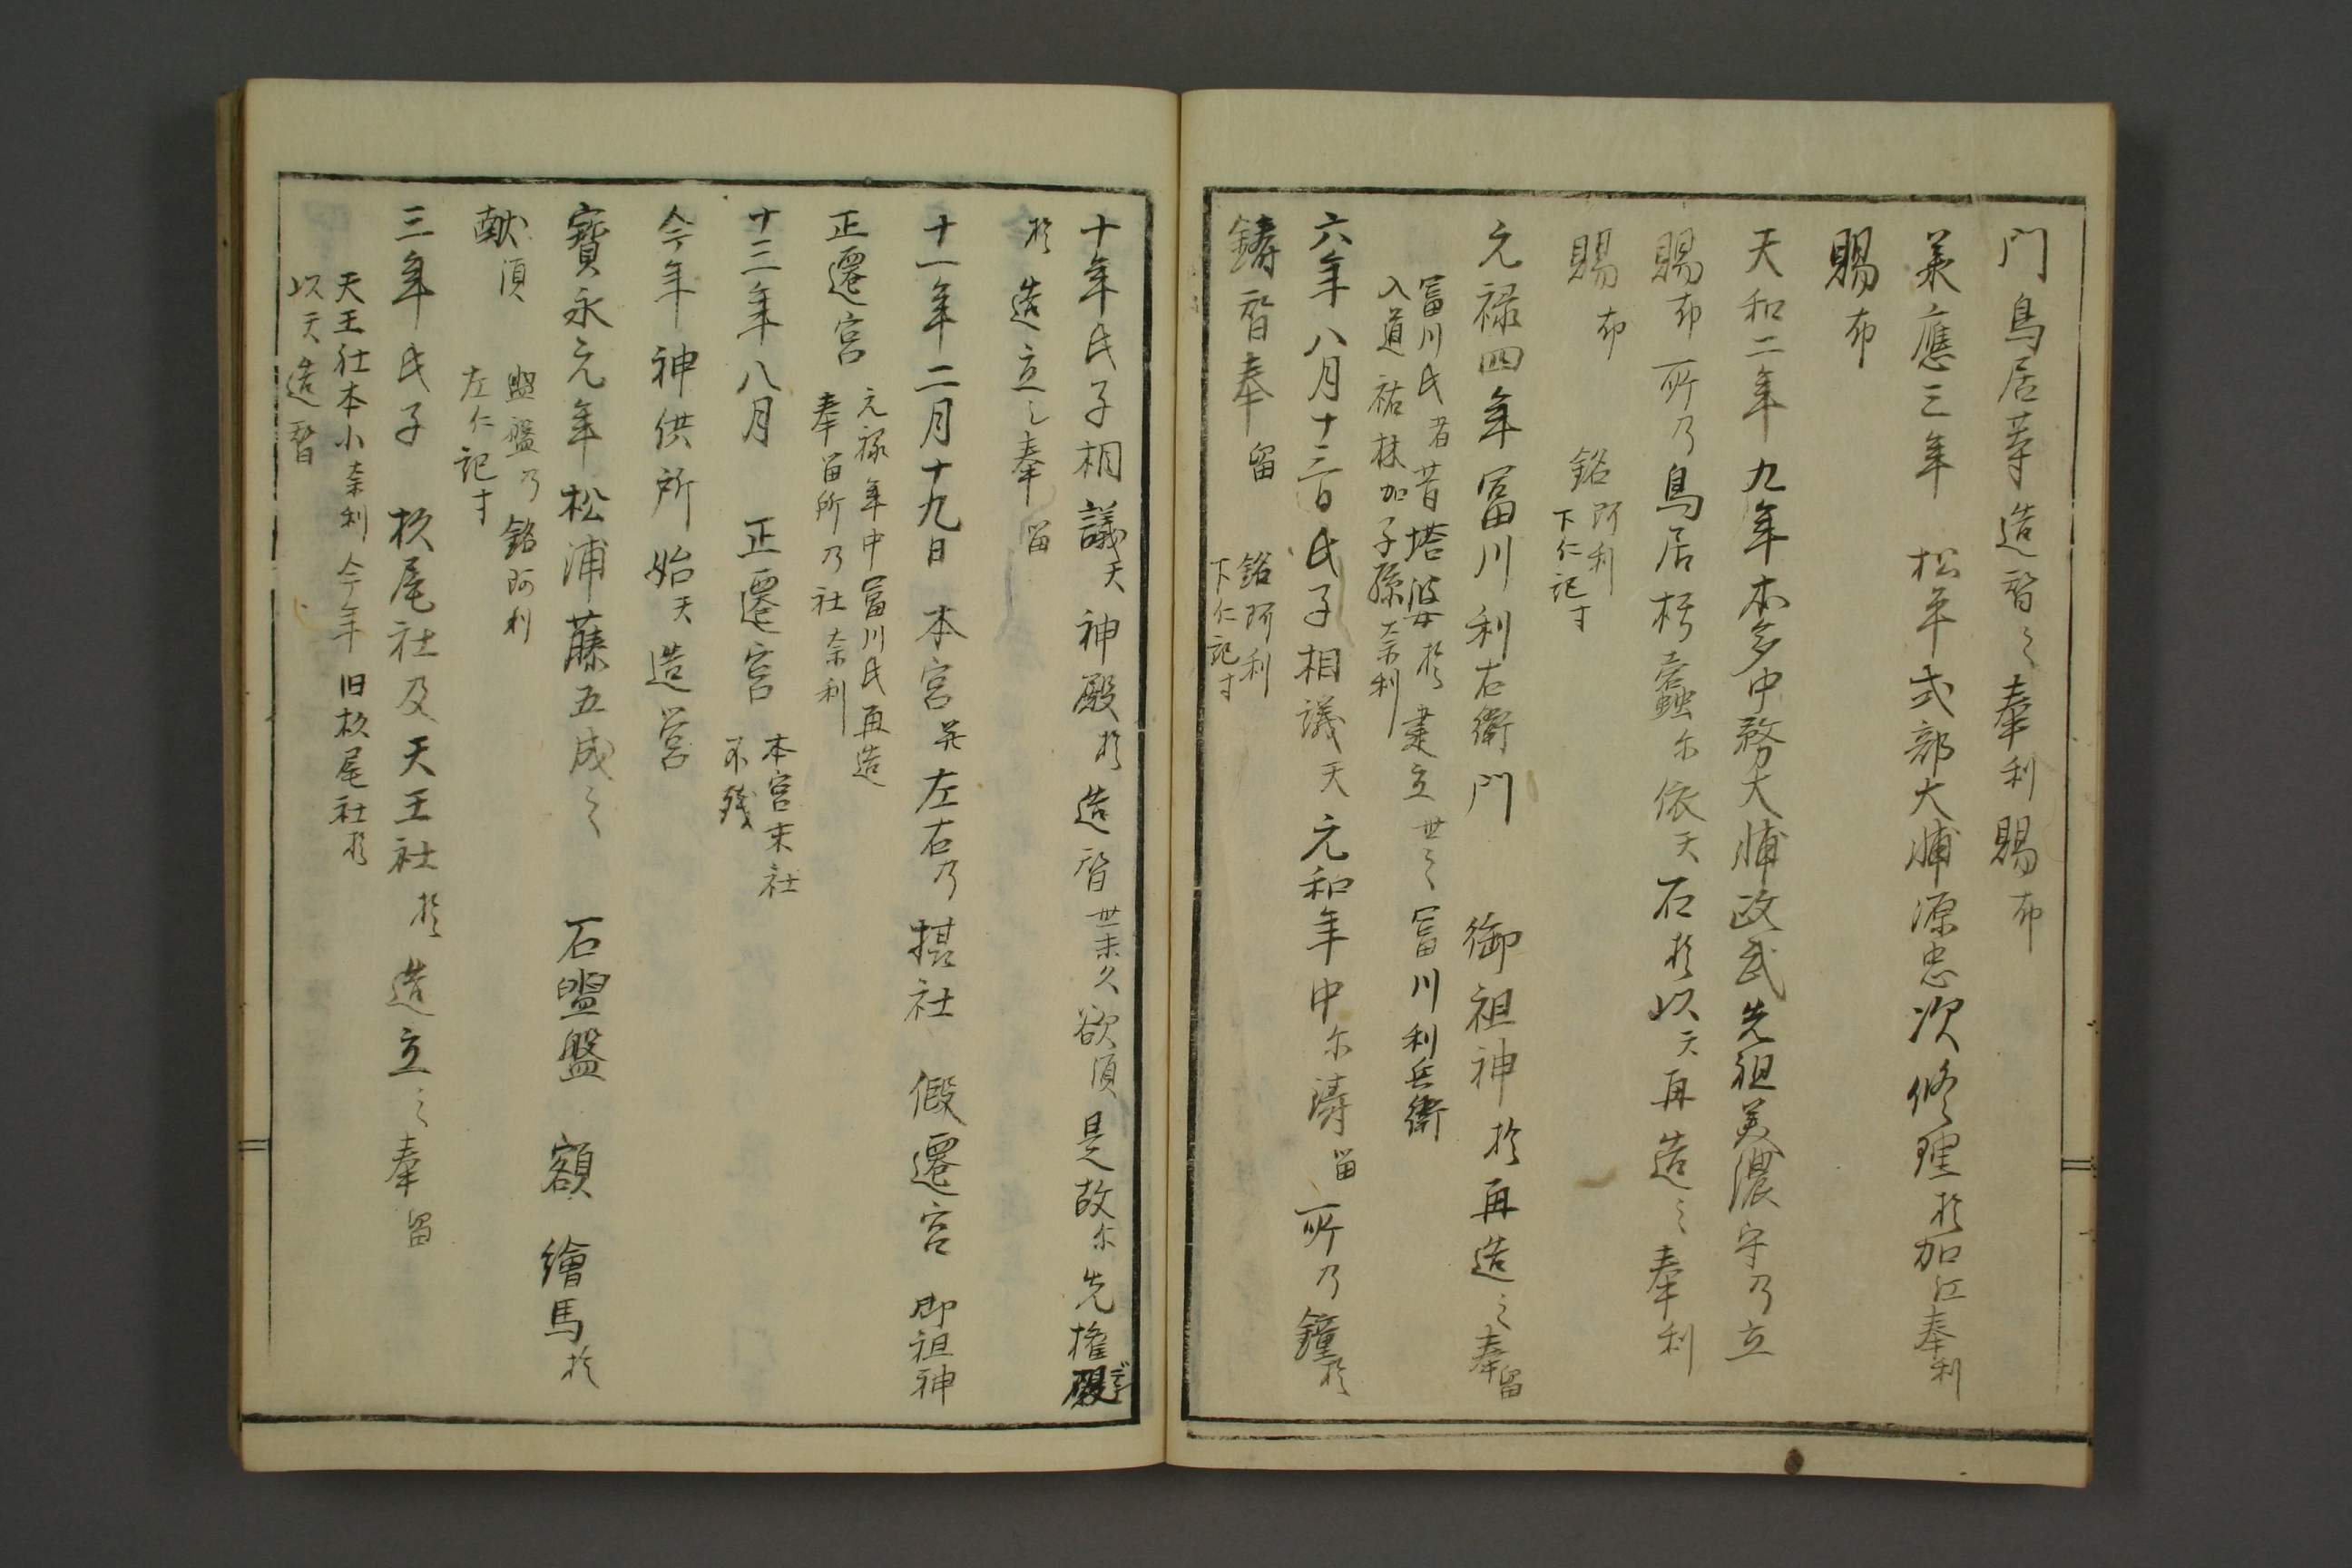 門鳥居等造替之奉利賜布
承應三年　松平式部大輔源忠次修理於加江奉利
賜布
天和二年九年本多中務大輔政武先祖美濃守乃立
賜布所乃鳥居朽蠹尓依天石於以天再造之奉利
賜布　銘阿利
下仁記寸
元禄四年冨川利右衛門　御祖神於再造之奉留
冨川氏者昔塔婆於建立世之冨川利兵衛
入道祐林加子孫奈利
六年八月十三日氏子相議天元和年中尓鋳留所乃鐘於
鋳替奉留　銘阿利
下仁記寸
十年氏子相議天神殿於造替世末久欲須是故尓先権殿
於造立之奉留
十一年二月十九日本宮并左右乃摂社　假遷宮　御祖神
正遷宮　元禄年中冨川氏再造
奉留所乃社奈利
十三年八月　正遷宮　本宮末社
不残
今年神供所始天造営
寳永元年松浦藤五成之　石盥盤　額　繪馬於
献須　盥盤乃銘阿利
左仁記寸
三年氏子　杦尾社及天王社於造立之奉留
天王社本小奈利今年旧杦尾社於
以天造替